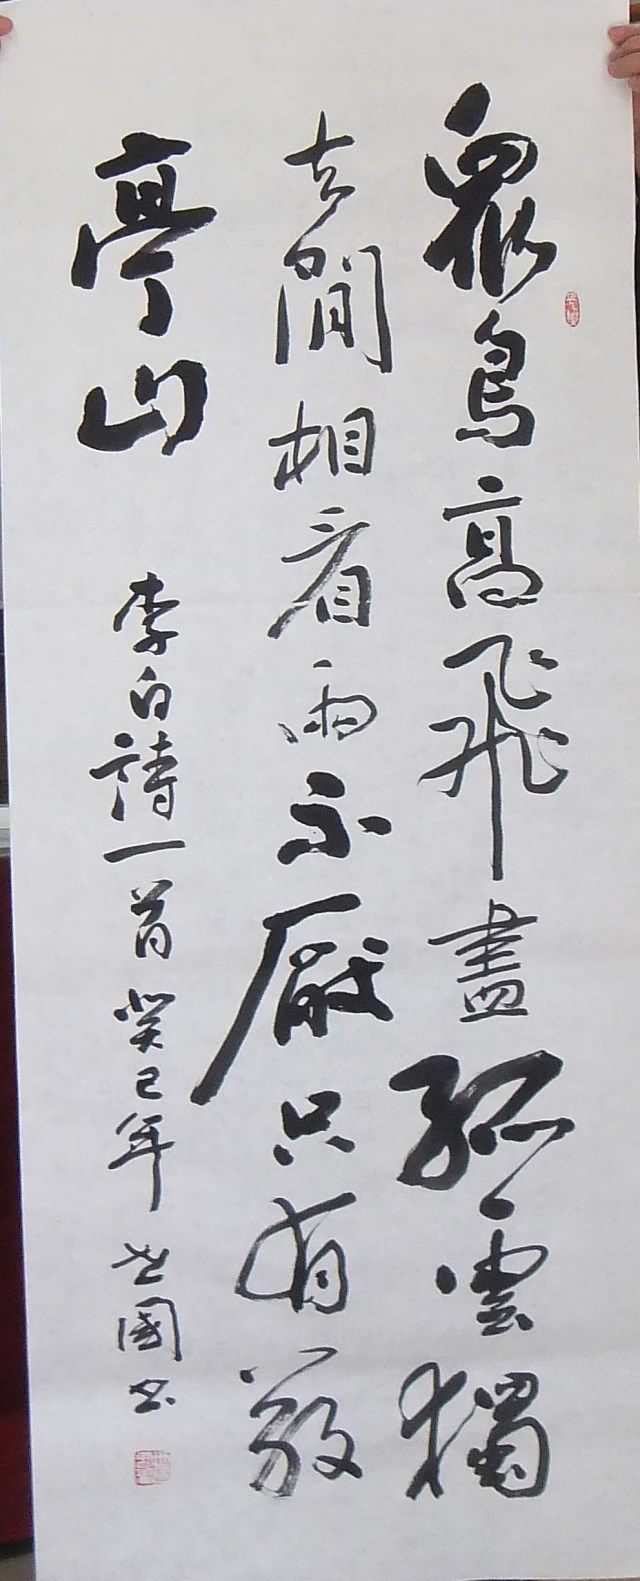 眾鳥高飛盡孤雲獨
去閒相看兩不厭只有敬
亭山
李白詩一首癸巳年世國書